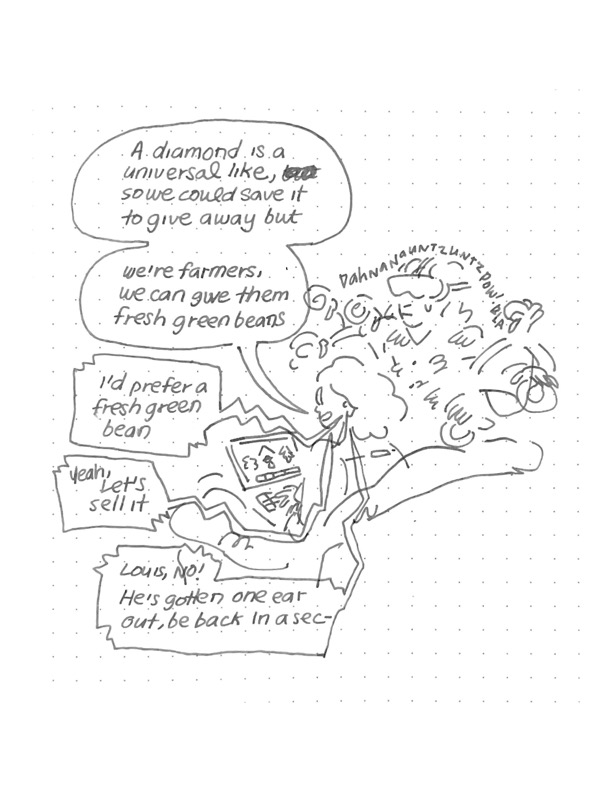 A diamond is a
universal like,
so we could save it
to give away but
we're farmers,
we can give them
fresh green beans
DahnanauntzuntzPOW!BLA
I'd prefer a
fresh green
bean
yeah,
Let's
sell it
Louis, NO!
He's gotten one ear
out, be back in a sec-